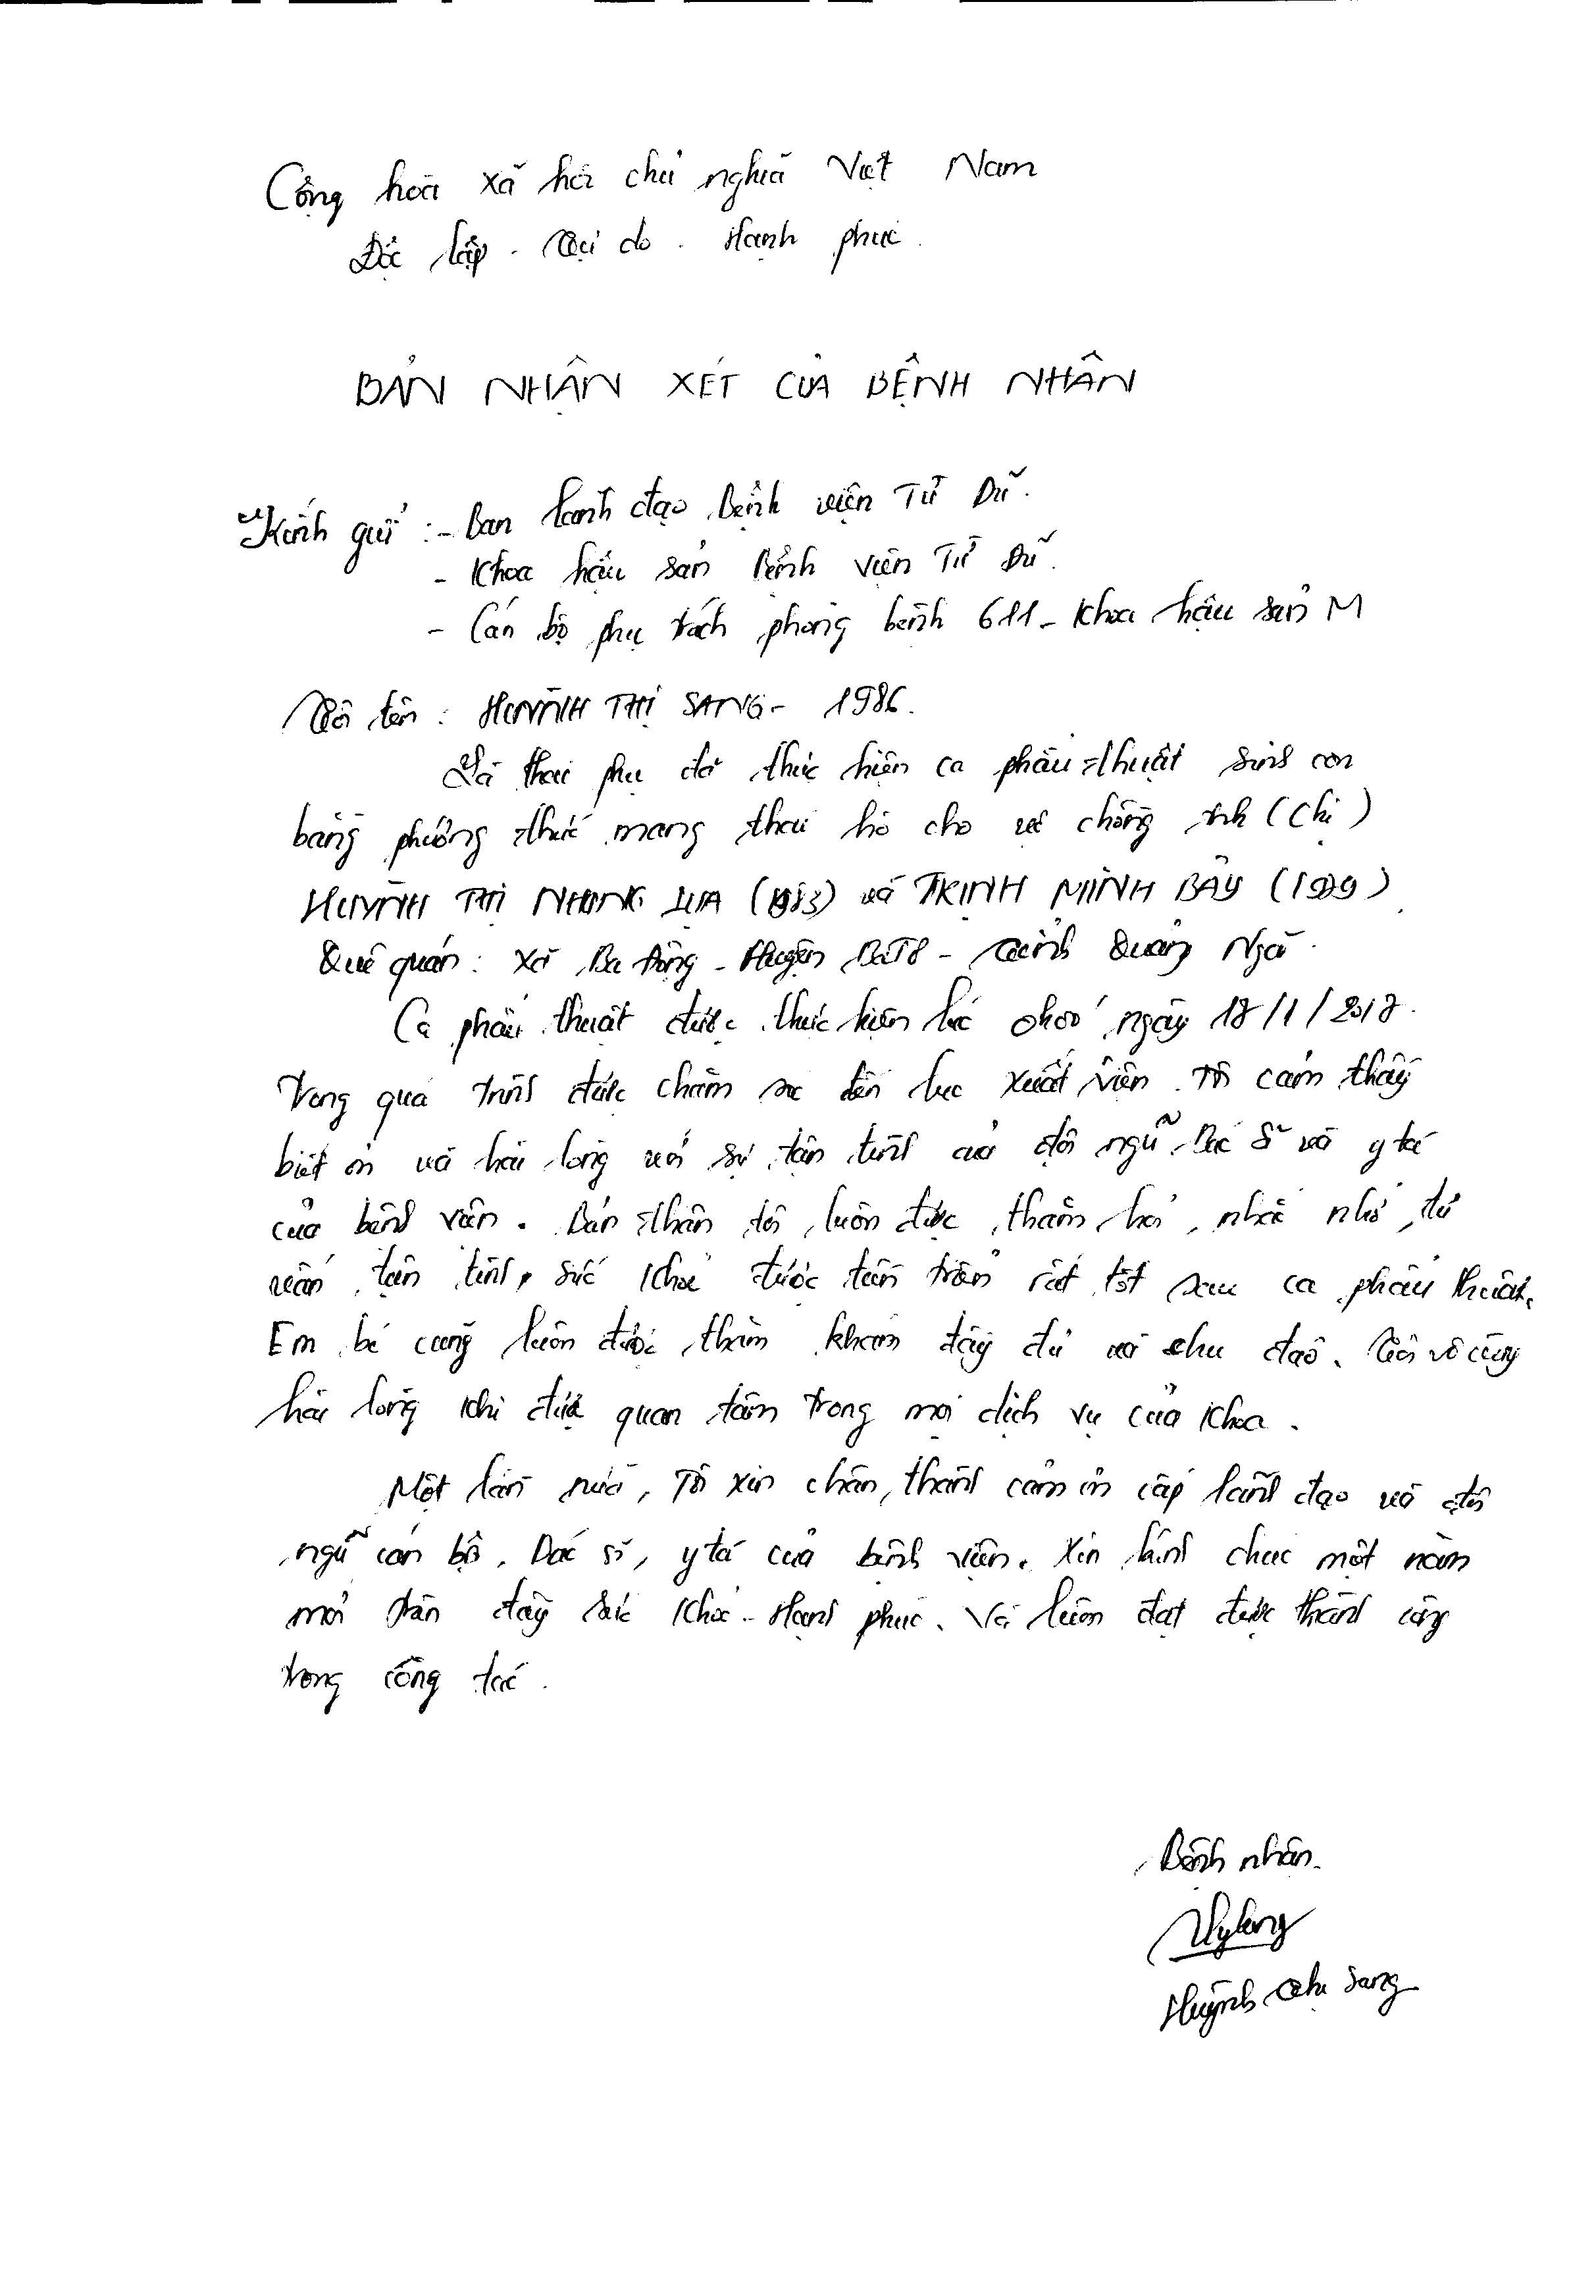 Cộng hòa xã hội chủ nghĩa Việt Nam
Độc lập - Tự do - Hạnh phúc.
BẢN NHẬN XÉT CỦA BỆNH NHÂN
Kính gửi: - Ban lãnh đạo Bệnh viện Từ Dũ.
- Khoa hậu sản Bệnh viện Từ Dũ.
- Cán bộ phụ trách phòng bệnh 611 - Khoa hậu sản M
Tôi tên: HUỲNH THỊ SANG - 1986.
Là thai phụ đã thực hiện ca phẫu thuật sinh con
bằng phương thức mang thai hộ cho vợ chồng Anh (Chị)
HUỲNH THỊ NHUNG LỤA (1983) và TRỊNH MINH BẢY (1979).
Quê quán: Xã Ba Động - Huyện Ba Tơ - Tỉnh Quảng Ngãi.
Ca phẫu thuật được thực hiện lúc 0h00' ngày 18/1/2018.
Trong quá trình được chăm sóc đến lúc xuất viện. Tôi cảm thấy
biết ơn và hài lòng với sự tận tình của đội ngũ Bác sĩ và y tá
của bệnh viện. Bản thân tôi luôn được thăm hỏi, nhắc nhở, tư
vấn tận tình, sức khỏe được tiến triển rất tốt sau ca phẫu thuật.
Em bé cũng luôn được thăm khám đầy đủ và chu đáo. Tôi vô cùng
hài lòng khi được quan tâm trong mọi dịch vụ của khoa.
Một lần nữa, Tôi xin chân thành cảm ơn cấp lãnh đạo và đội
ngũ cán bộ, Bác sĩ, y tá của bệnh viện. Xin kính chúc một năm
mới tràn đầy sức khỏe - Hạnh phúc. Và luôn đạt được thành công
trong công tác.
Bệnh nhân.
Huỳnh Thị Sang